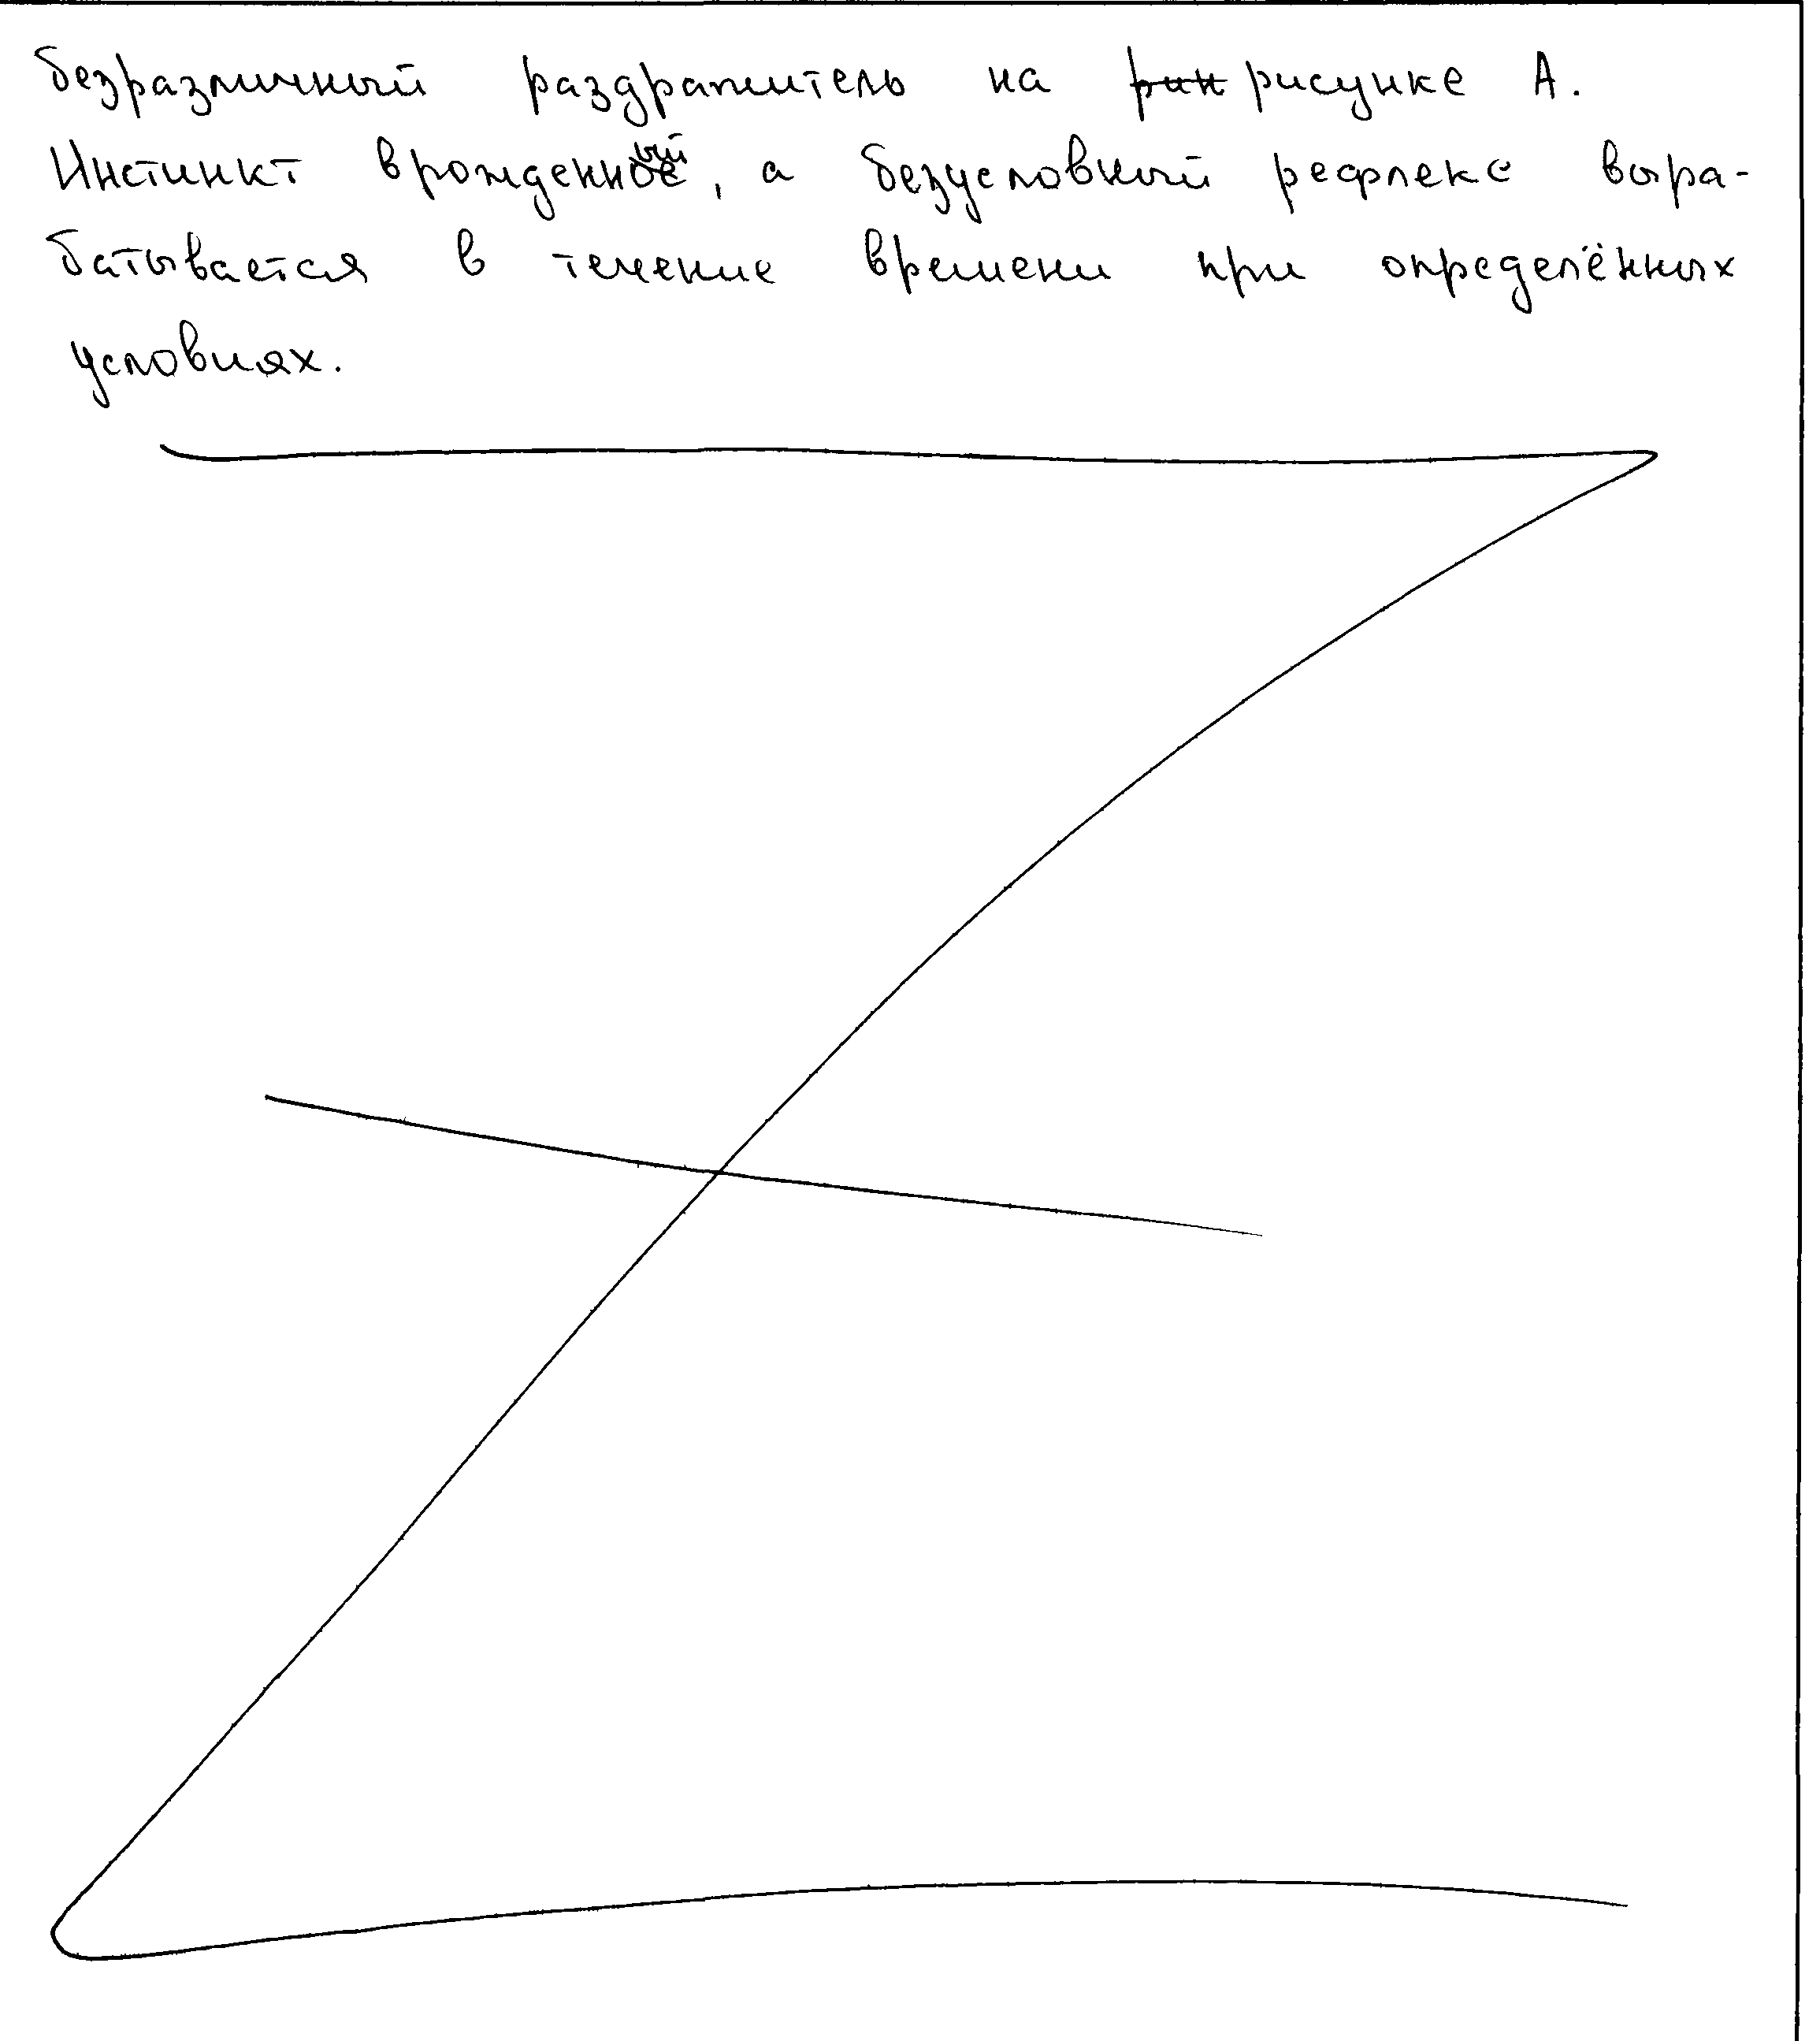 безразличный раздражитель на рисунке А.
Инстинкт врожденный, а безусловный рефлекс выра-
батывается в течение времени при определённых
условиях.